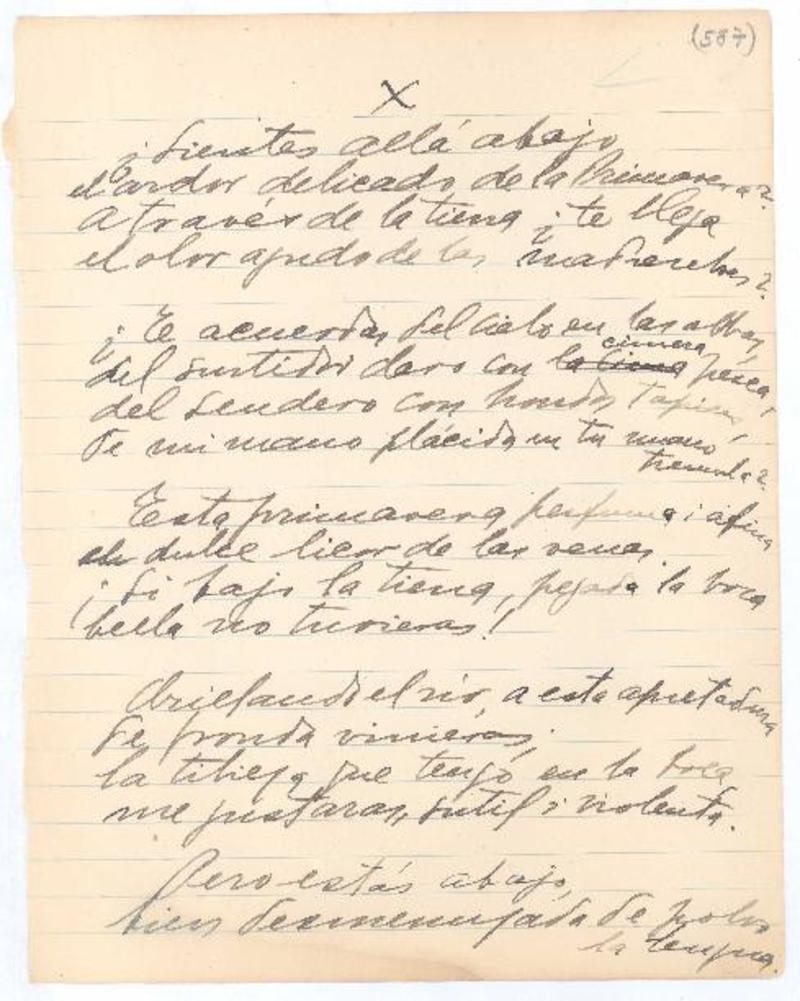 (587)
X
¿Sientes allá abajo
el ardor delicado de la Primavera?
A través de la tierra ¿te llega
el olor agudo de las madreselvas?
¿Te acuerdas del cielo en las albas,
del surtidor claro con la cima cimera pérea,
del sendero con hondos tapices,
de mi mano plácida en tu mano
tremula?
Esta primavera perfuma i afina
el dulce licor de las venas.
¡Si bajo la tierra, pegada la boca
bella no tuvieras!
Orillando el río, a esta apretadura
de fronda vinieras;
la tibieza que tengo en la boca
me gustaras, sutil i violenta.
Pero estás abajo,
bien desmenuzada de polvo
la lengua.